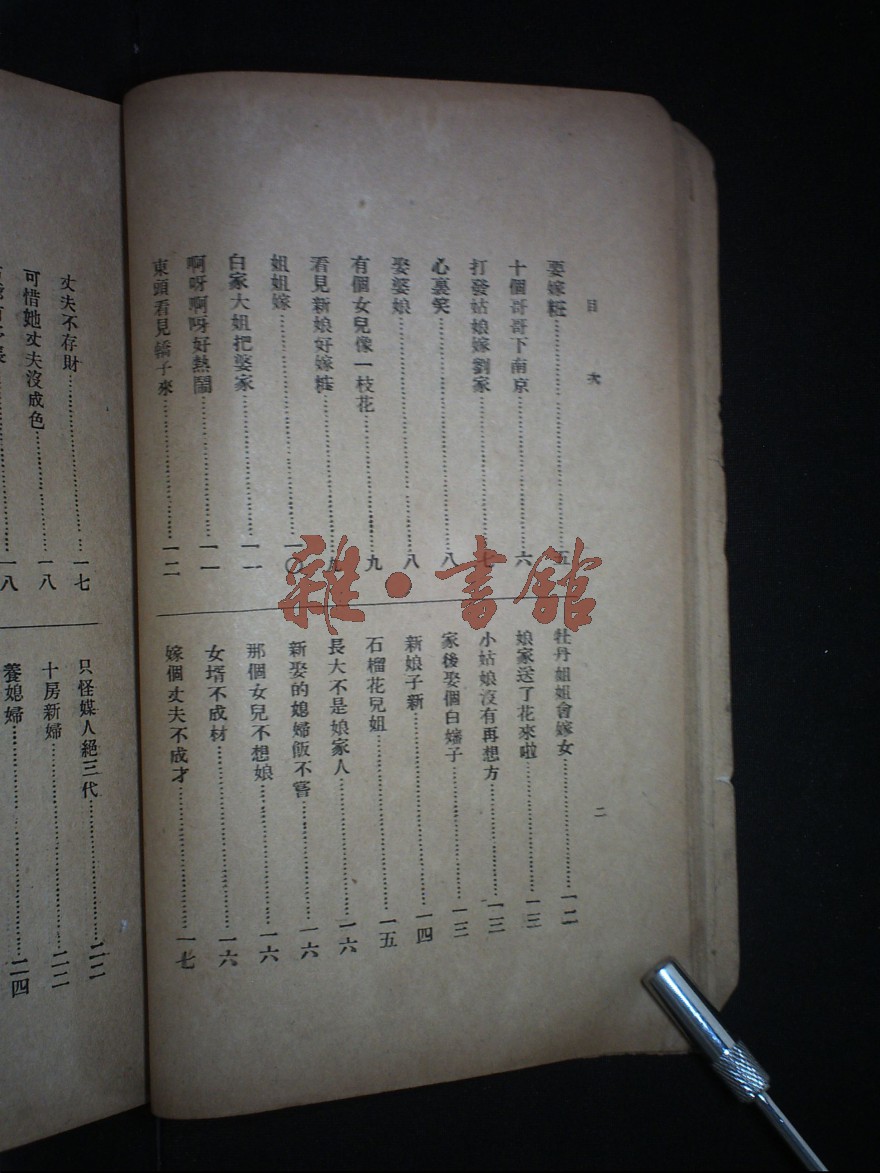 目次
要嫁粧……五
十個哥哥下南京……六
打發姑娘嫁劉家……七
心裏笑……八
娶婆娘……八
有個女兒像一枝花……九
看見新娘好嫁粧……九
姐姐嫁……一〇
白家大姐把婆家……一一
啊呀啊呀好熱鬧……一一
東頭看見轎子來……一二
牡丹姐姐會嫁女……一二
娘家送了花來啦……一三
小姑娘沒有再想方……一三
家後娶個白嬸子……一三
新娘子新……一四
石榴花兒姐……一五
長大不是娘家人……一六
新娶的媳婦飯不嘗……一六
那個女兒不想娘……一六
女壻不成材……一六
嫁個丈夫不成才……一七
二
丈夫不存財……一七
可惜她丈夫沒成色……一八
一八
只怪媒人絕三代……二二
十房新婦……二二
養媳婦……二四
雜·書館